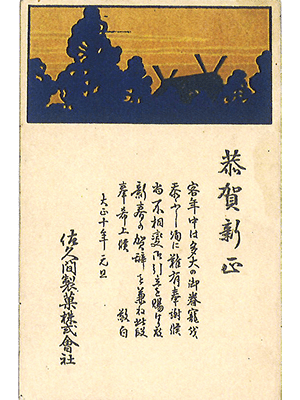 恭賀新正
客年中は多大の御眷寵を
忝ふし洵に難有奉謝候
尚不相変御引立を賜り度
新春の賀辞を兼ね此段
奉希上候 敬白
大正十年 元旦
佐久間製菓株式會社